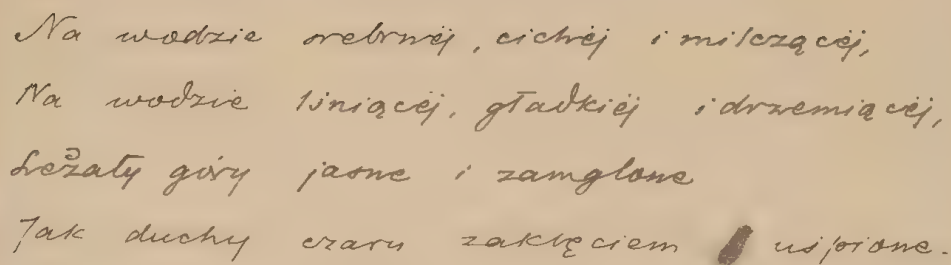 Na wodzie srebrnéj, cichéj i milczącéj,
Na wodzie lśniącéj, gładkiéj i drzemiącéj,
Leżały góry jasne i zamglone
Jak duchy czaru zaklęciem uśpione.